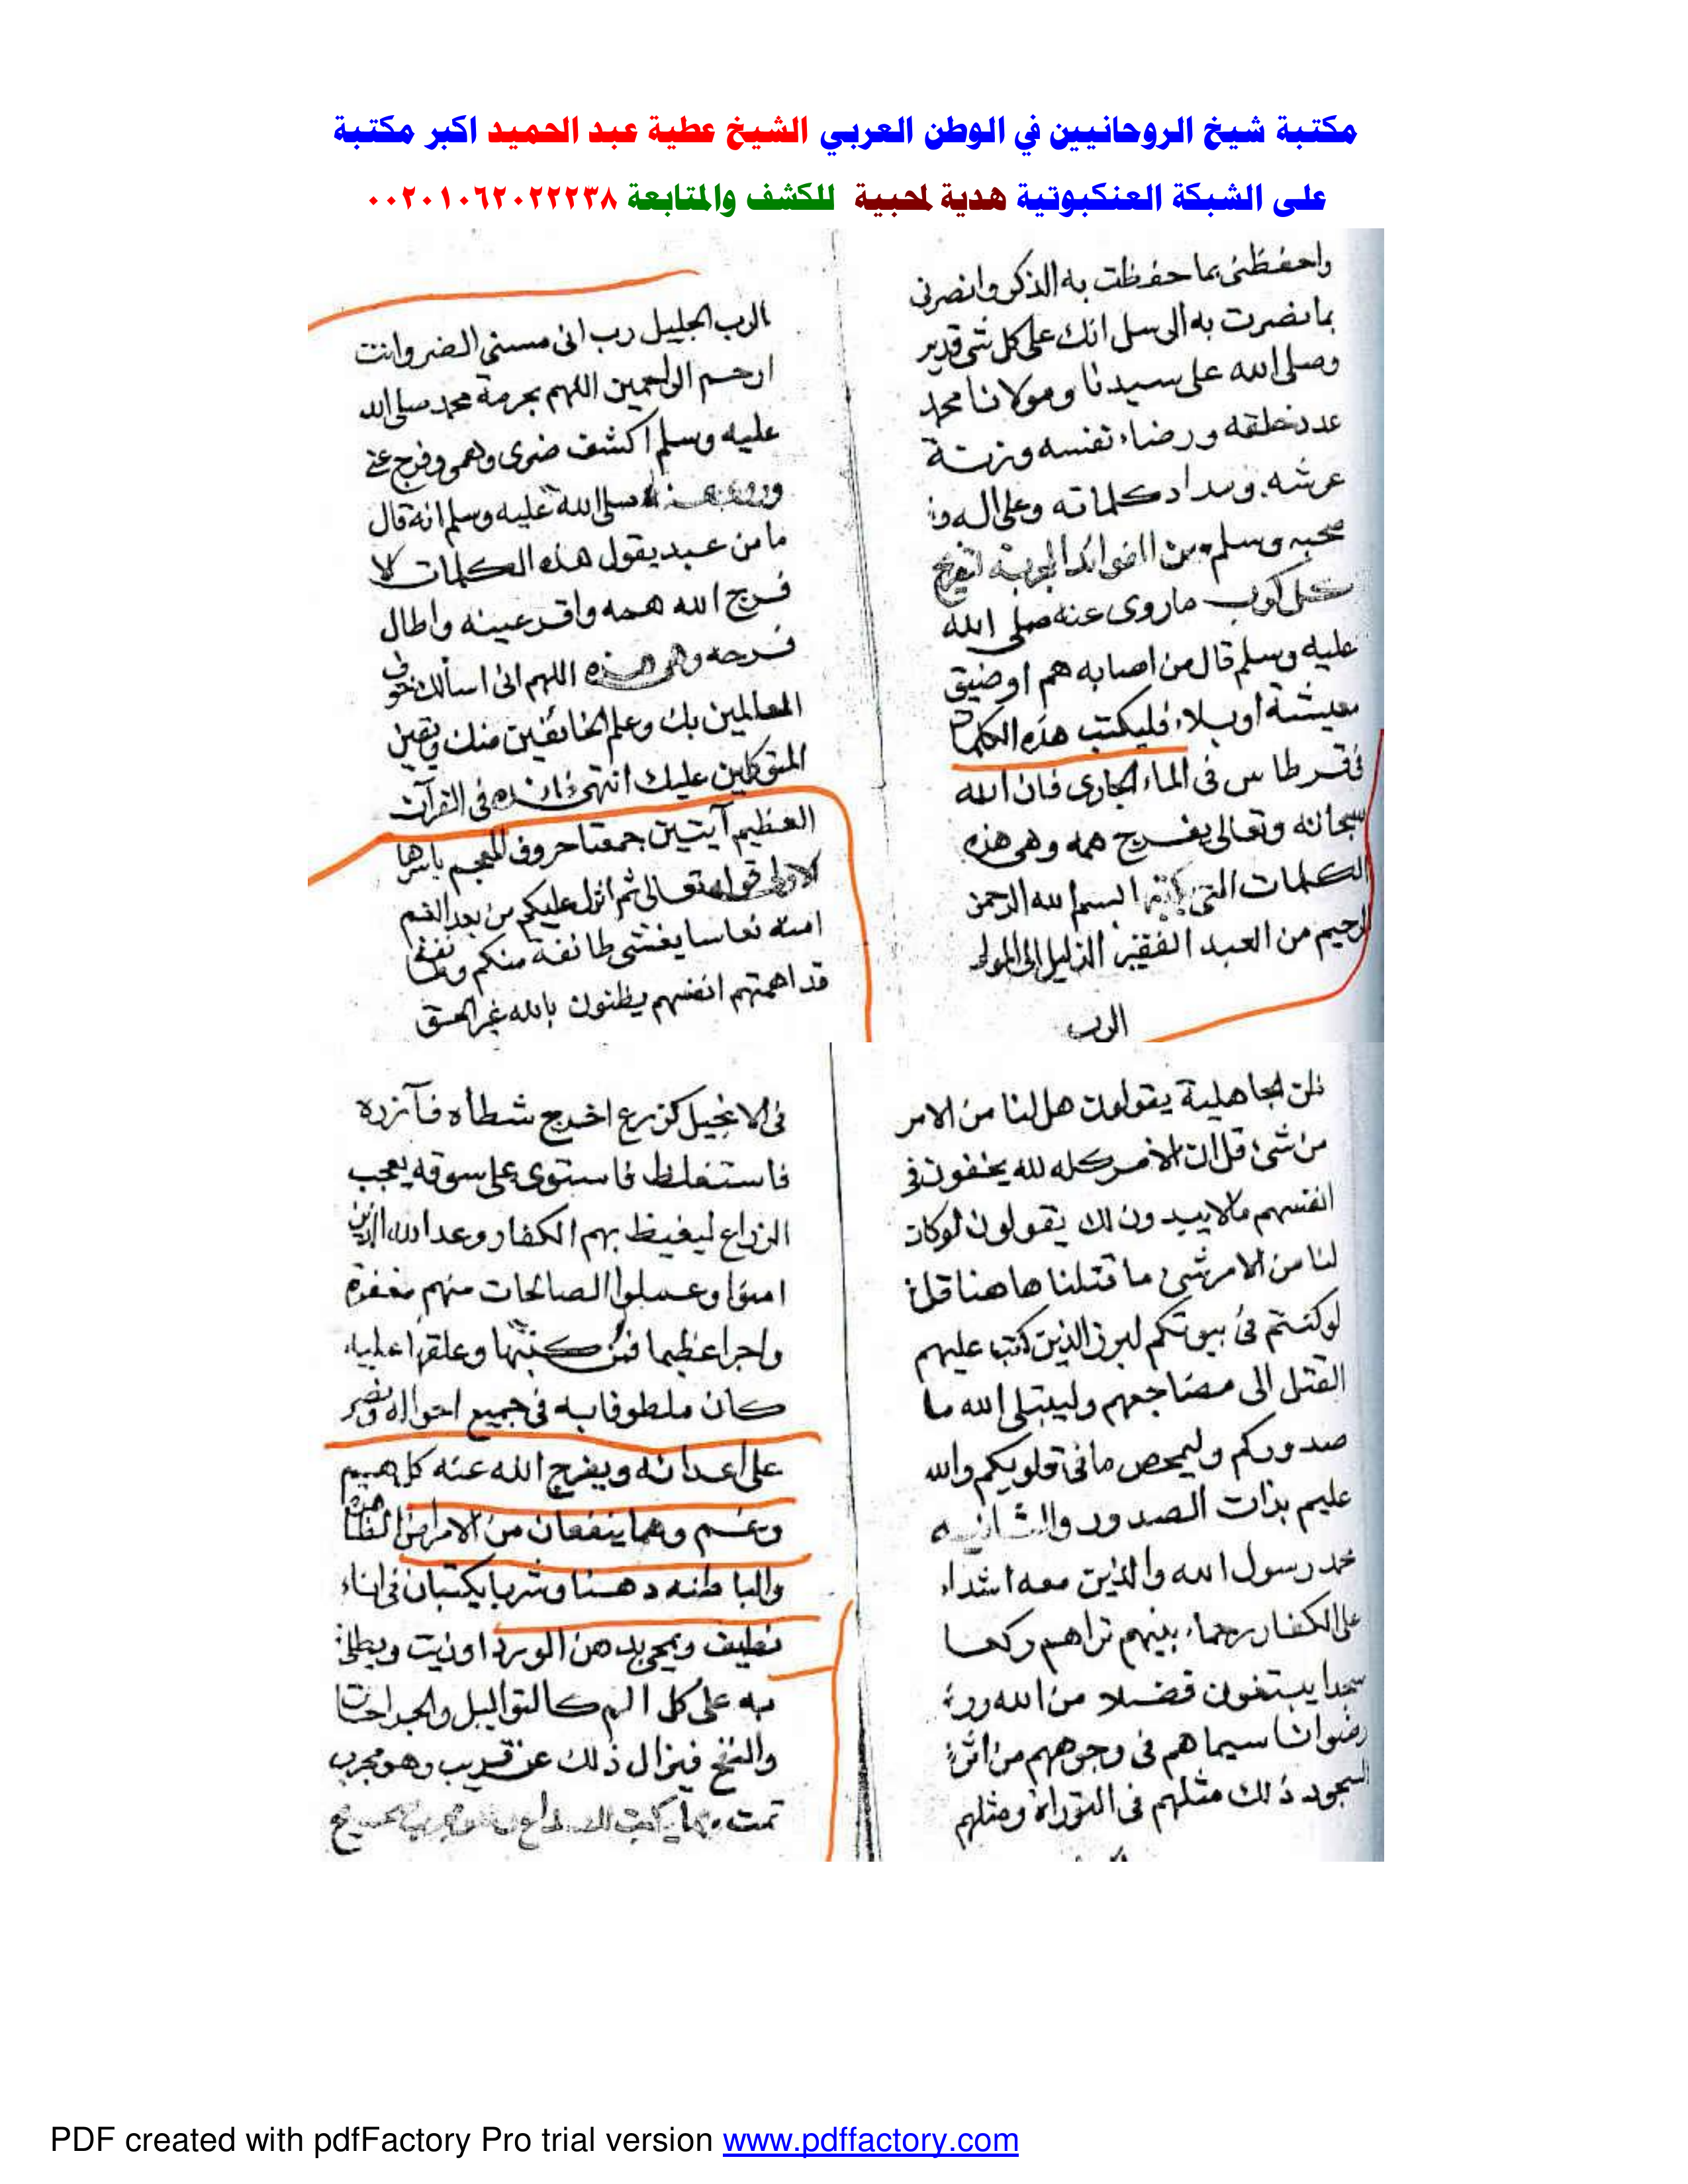 مكتبة شيخ الروحانيين في الوطن العربي الشيخ عطية عبد الحميد اكبر مكتبة
على الشبكة العنكبوتية هدية لمحبية للكشف والمتابعة ٠٠٢٠١٠٦٢٠٢٢٢٣٨
واحفظنى بما حفظت به الذكر وانصرنى
بما نصرت به الرسل انك على كل شى قدير
وصلى الله على سيدنا ومولانا محمد
عدد خلقه ورضاء نفسه وزنة
عرشه ومداد كلماته وعلى اله و
صحبه وسلم من الفوائد المجربة لتفريج
كل كرب ماروى عنه صلى الله
عليه وسلم قال من اصابه هم اوضيق
معيشة اوبلاء فليكتب هذه الكلمات
فى قرطاس فى الماء الجارى فان الله
سبحانه وتعالى يفرج همه وهى هذه
الكلمات التى بسم الله الرحمن
الرحيم من العبد الفقير الذليل الى المولى
الرب
الرب الجليل رب انى مسنى الضر وانت
ارحم الراحمين اللهم بحرمة محمد صلى الله
عليه وسلم اكشف ضرى وهمى وفرج عنى
صلى الله عليه وسلم انه قال
ما من عبد يقول هذه الكلمات الا
فرج الله همه واقر عينه واطال
فرحه وهى هذه اللهم انى اسألك خوف
العالمين بك وعلم الخائفين منك ويقين
المتوكلين عليك انتهى فى القرآن
العظيم آيتين جمعتا حروف المعجم باسرها
الاولى قوله تعالى ثم انزل عليكم من بعد الغم
امنة نعاسا يغشى طائفة منكم وطائفة
قد اهمتهم انفسهم يظنون بالله غير الحق
ظن الجاهلية يقولون هل لنا من الامر
من شئ قل ان الامر كله لله يخفون فى
انفسهم مالا يبدون لك يقولون لوكان
لنا من الامر شئ ما قتلنا هاهنا قل
لوكنتم فى بيوتكم لبرز الذين كتب عليهم
القتل الى مضاجعهم وليبتلى الله ما
صدوركم وليمحص ما فى قلوبكم والله
عليم بذات الصدور والثانيه
محمد رسول الله والذين معه اشداء
على الكفار رحماء بينهم تراهم ركعا
سجدا يبتغون فضلا من الله ور
رضوانا سيماهم فى وجوههم من اثر
السجود ذلك مثلهم فى التوراة ومثلهم
فى الانجيل كزرع اخرج شطأه فآزره
فاستغلظ فاستوى على سوقه يعجب
الزراع ليغيظ بهم الكفار وعد الله الذين
امنوا وعملوا الصالحات منهم مغفرة
واجرا عظيما فمن كتبها وعلقها عليه
كان ملطوفا به فى جميع احواله ونصر
على اعدائه ويفرج الله عنه كل هم
وغم وهما ينفعان من الامراض الظاهرة
والباطنه دهنا وشربا يكتبان فى اناء
نظيف ويمحى بدهن الورد اوزيت ويطلى
به على كل الم كالتواليل والجراحات
والنفخ فيزال ذلك عن قريب وهو مجرب
تمت
PDF created with pdfFactory Pro trial version www.pdffactory.com